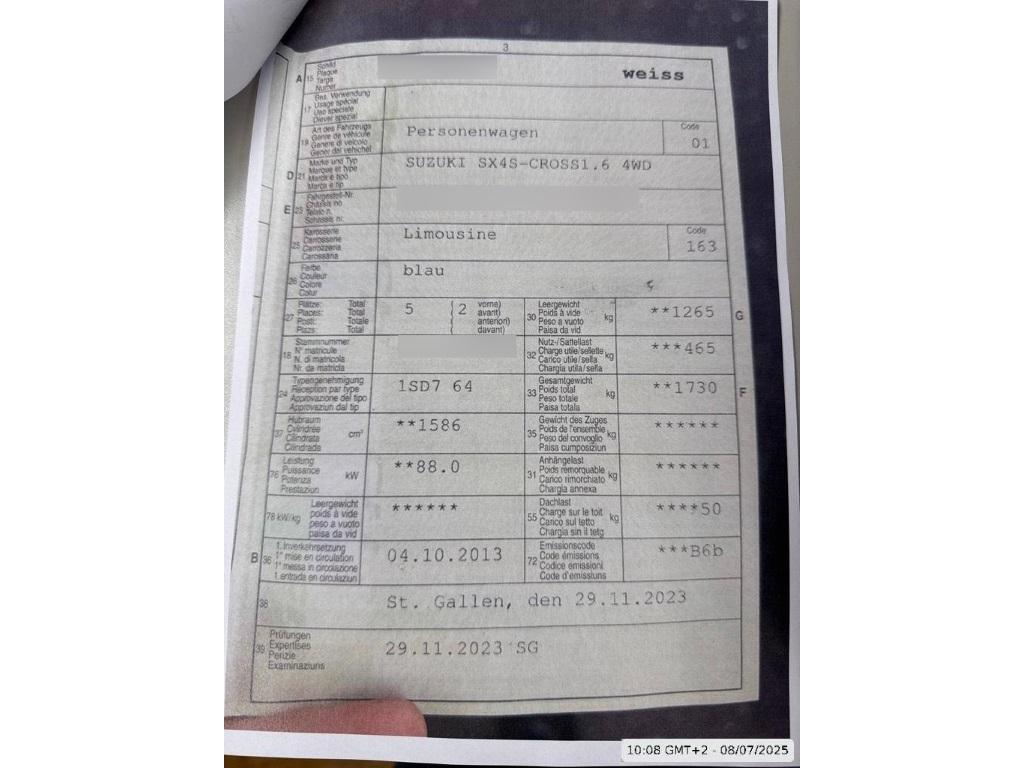 3
A 15 Schild
Plaque
Targa
Numer
weiss
17 Bes. Verwendung
Usage spécial
Uso speciale
Diever spezial
19 Art des Fahrzeugs
Genre de véhicule
Genere di veicolo
Gener dal vehichel
Personenwagen
Code
01
D 21 Marke und Typ
Marque et type
Marca e tipo
Marca e tip
SUZUKI SX4S-CROSS1.6 4WD
E 23 Fahrgestell-Nr.
Châssis no
Telaio n.
Schassis nr.
25 Karosserie
Carrosserie
Carrozzeria
Carossaria
Limousine
Code
163
26 Farbe
Couleur
Colore
Colur
blau
27 Plätze: Total
Places: Total
Posti: Totale
Plazs: Total
5 ( 2 vorne)
( avant)
( anteriori)
( davant)
30 Leergewicht
Poids à vide
Peso a vuoto
Paisa da vid
kg
**1265
G
18 Stammnummer
N° matricule
N. di matricola
Nr. da matricla
32 Nutz-/Sattellast
Charge utile/sellette
Carico utile/sella
Chargia utila/sella
kg
***465
24 Typengenehmigung
Réception par type
Approvazione del tipo
Approvaziun dal tip
1SD7 64
33 Gesamtgewicht
Poids total
Peso totale
Paisa totala
kg
**1730
F
37 Hubraum
Cylindrée
Cilindrata
Cilindrada
cm³
**1586
35 Gewicht des Zuges
Poids de l'ensemble
Peso del convoglio
Paisa cumposiziun
kg
******
76 Leistung
Puissance
Potenza
Prestaziun
kW
**88.0
31 Anhängelast
Poids remorquable
Carico rimorchiato
Chargia annexa
kg
******
78 kW/kg Leergewicht
poids à vide
peso a vuoto
paisa da vid
******
55 Dachlast
Charge sur le toit
Carico sul tetto
Chargia sin il tetg
kg
****50
B 36 1. Inverkehrsetzung
1re mise en circulation
1a messa in circolazione
1. entrada en circulaziun
04.10.2013
72 Emissionscode
Code émissions
Codice emissioni
Code d'emissiuns
***B6b
38
St. Gallen, den 29.11.2023
39 Prüfungen
Expertises
Perizie
Examinaziuns
29.11.2023 SG
10:08 GMT+2 - 08/07/2025